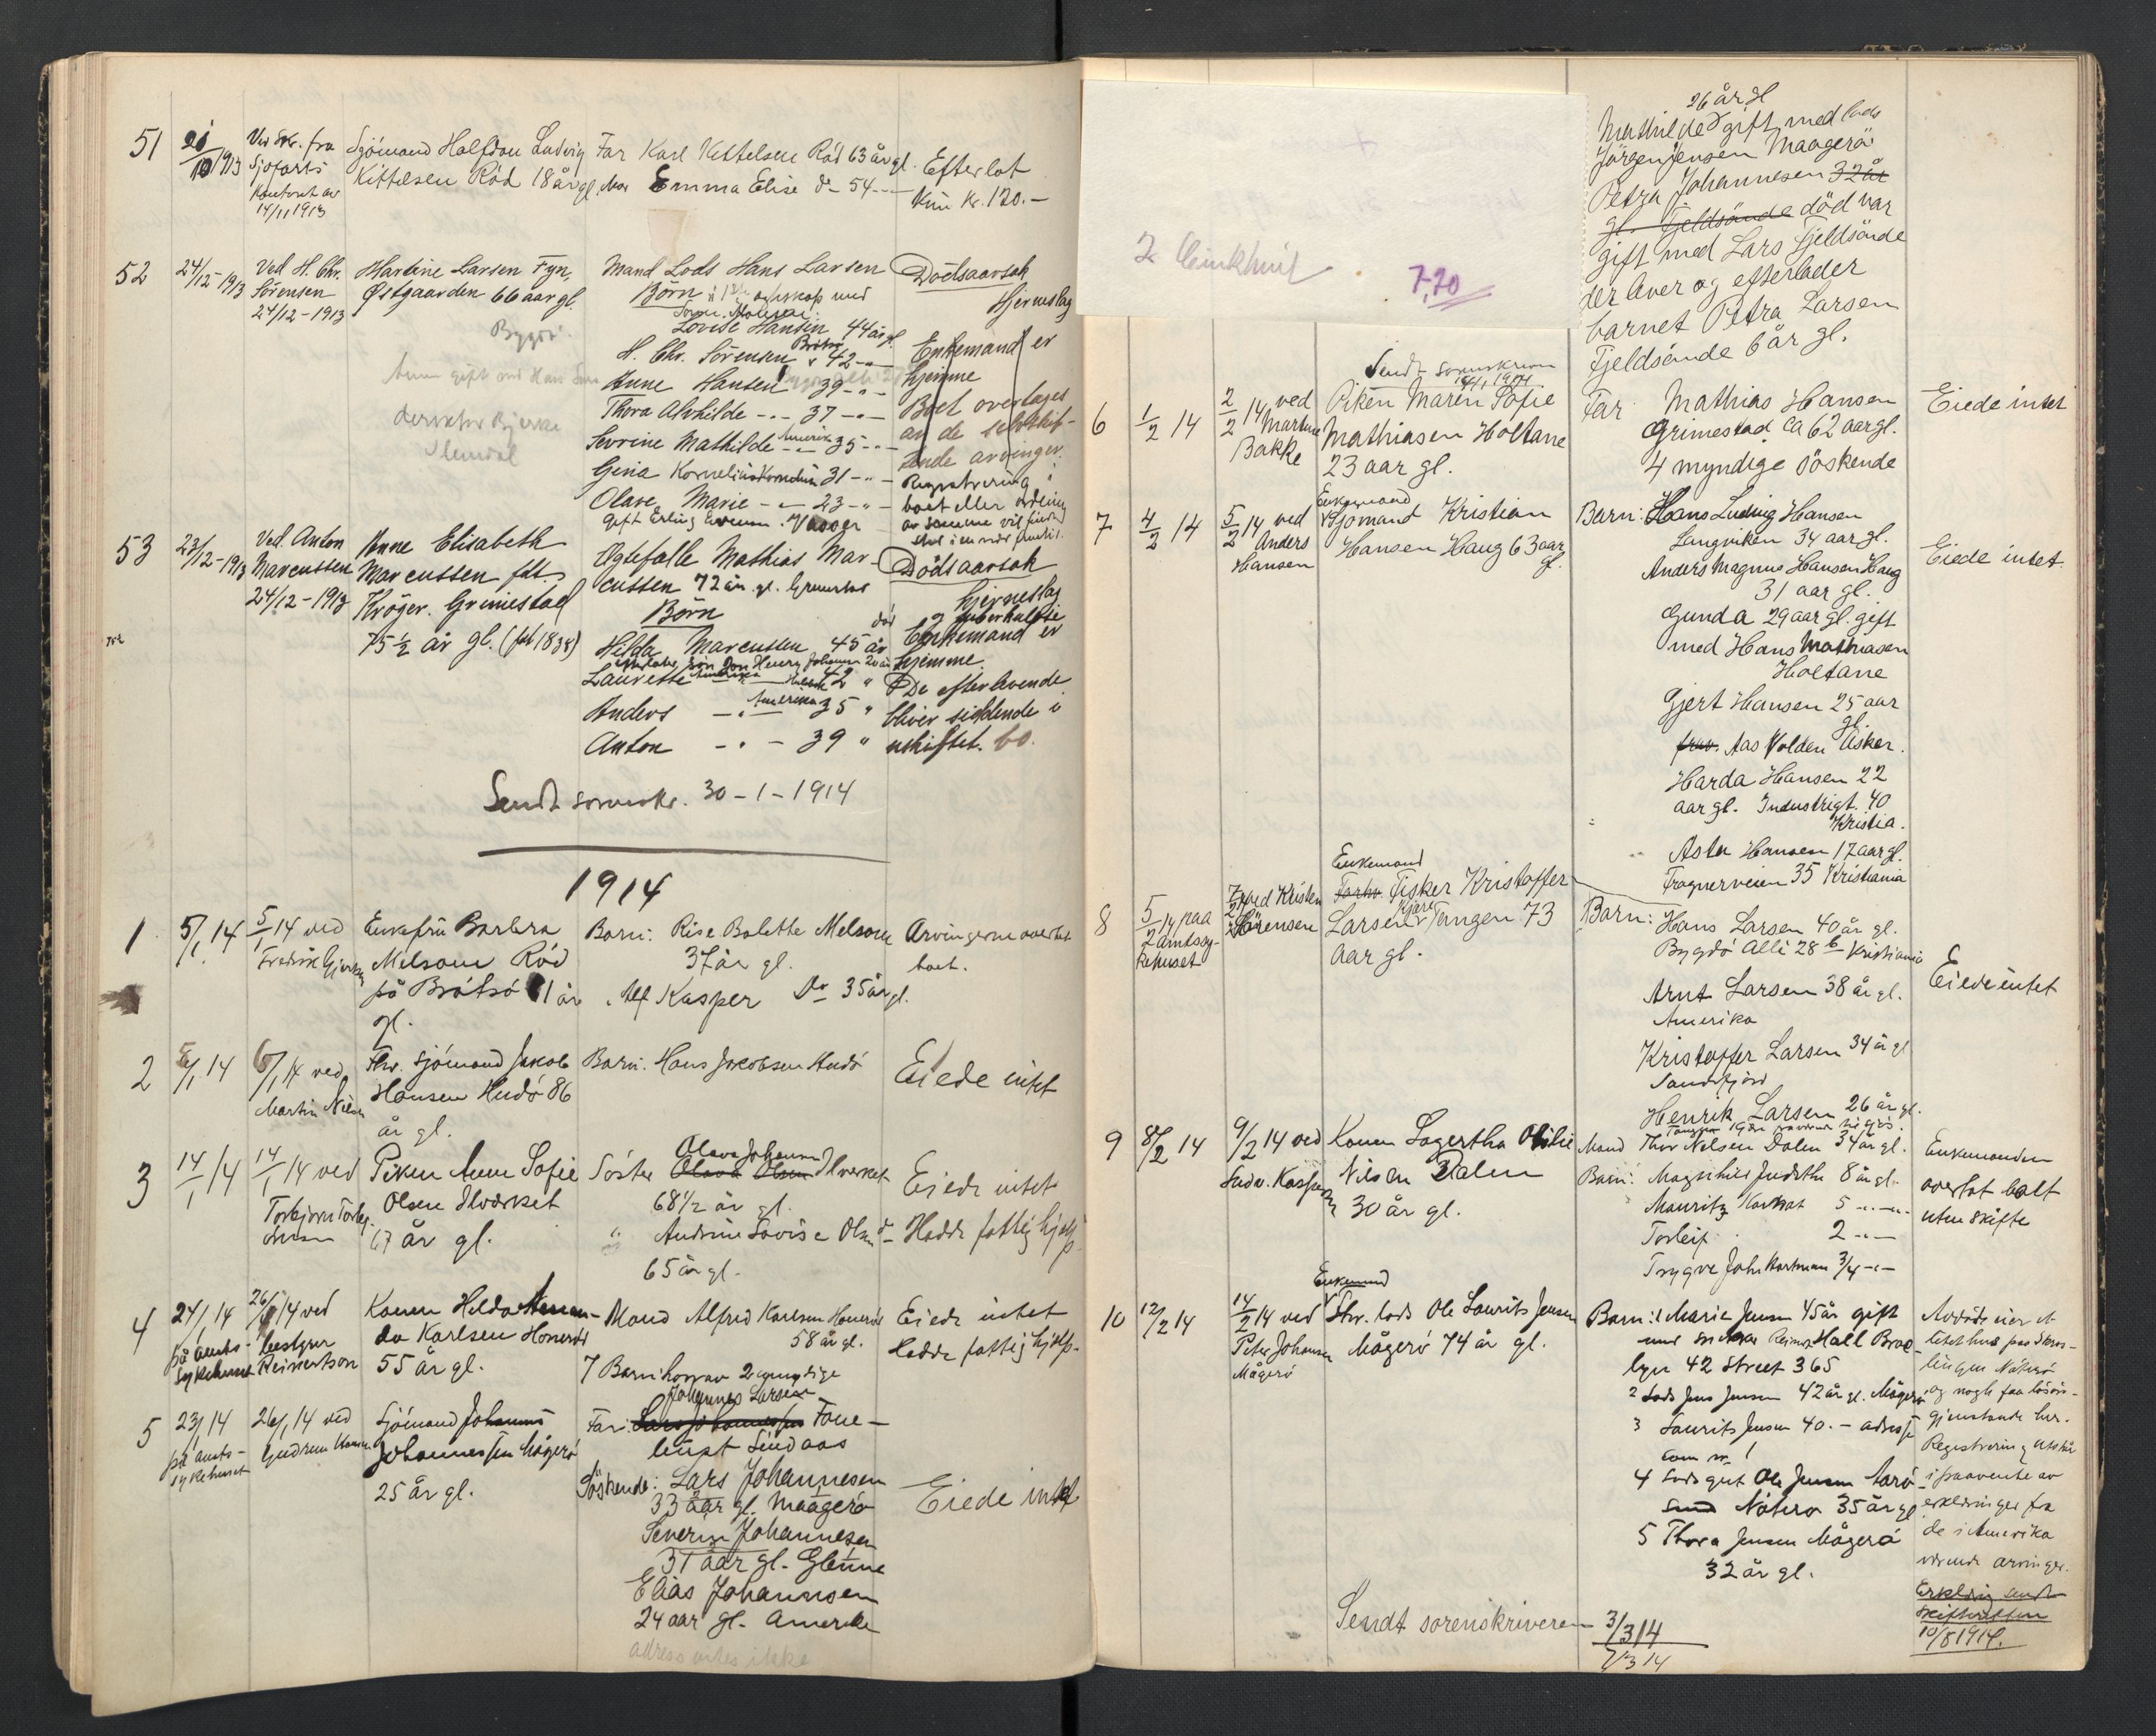 51
21/10 1913
Ved Skr. fra
Sjøfarts
Kontoret av
14/11 1913
Sjömand Halfdan Ludvig
Kittelsen Röd 18 år gl.
Far Karl Kittelsen Röd 63 år gl.
Mor Emma Elise do 54
Efterlot
kun kr. 120.-
52
24/12-1913
Ved H. Chr.
Sörensen
24/12-1913
Martine Larsen Fyn,
Østgaarden 66 aar gl.
Mand Lods Hans Larsen
Börn i 1ste egteskap med
Lovise Hansen 44 år gl.
H. Chr. Sörensen 42
Anne Hansen 39
Thora Alvhilde 37
Sevrine Mathilde Amerika 35
Gina Kornelia 31
Olave Marie 23
Gift Erling Evensen
Dödsaarsak
Hjerneslag
Enkemand er
hjemme
Boet overtages
av de selvskif-
tende arvinger.
Registrering i
boet eller
53
23/12-1913
Ved. Anton
Marcussen
24/12-1913
Anne Elisabeth
Marcussen født
Kröger. Grimestad
75 1/2 år gl. (født 1838)
Ægtefælle Mathias Mar-
cussen 72 år. gl. Grimestad
Börn
Hilda Marcussen 45 år
død
Laurette Amerika 42 "
Anders Amerika 35 "
Anton 39 "
Dödsaarsak
Hjerneslag
Enkemand er
hjemme
De efterlevende
bliver siddende i
uskiftet bo.
Sendt sorenskr. 30-1-1914
1914
1
5/1 14
5/1 14 ved
Fredrik
Enkefru Barbra
Melsom Röd
på Brötsö 61 år
gl.
Barn: Rise Bolette Melsom
37 år gl.
Alf Kasper do 35 år gl.
Arvingerne overtat
boet.
2
5/1 14
6/1 14 ved
Martin Nilsen
Fhv. Sjömand Jakob
Hansen Hudö 86
år gl.
Barn: Hans Jakobsen Hudö
Eiede intet
3
14/1 14
14/1 14 ved
Piken Anne Sofie
Olsen Ilværket
67 år gl.
Olava Johanne
Söster Olava Olsen Ilverket
68 1/2 år gl.
" Andrine Lovise Olsen do
65 år gl.
Eiede intet
Hadde fattighjelp
4
24/1 14
på amts-
sykehuset
26/1 14 ved
bestyrer
Reinertson
Konen Hilda Aman-
da Karlsen Honerød
55 år gl.
Mand Alfred Karlsen Honerød
58 år gl.
7 Barn hvorav 2 umyndige
Eiede intet
hadde fattighjelp.
5
23/1 14
på amts-
sykehuset
26/1 14 ved
Gudrun Hansen
Sjömand Johannes
Johannessen Mågerö
25 år gl.
Johannes Larsen
Far: Lars Johannessen
Lindaas
Söskende: Lars Johannesen
33 aar gl. Maagerö
Severin Johannesen
31 aar gl. Glenne
Elias Johannesen
24 aar gl. Amerika
adresse vites ikke
Eiede intet
7,20
26 år gl
Mathilde gift med lods
Jörgen Jensen Maagerö
Petra Johannesen 32 år
gl. Fjeldsånde död var
gift med Lars Fjeldsånde
der lever og efterlader
barnet Petra Larsen
Fjeldsånde 6 år gl.
6
1/2 14
2/2 14 ved
Martine
Bakke
Sendt sorenskriveren
Piken Maren Sofie
Mathiasen Holtane
23 aar gl.
Far Mathias Hansen
Grimestad ca 62 aar gl.
4 myndige söskende
Eiede intet
7
4/2 14
5/2 14 ved
Anders
Hansen
Enkemand
Sjömand Kristian
Hansen Haug 63 aar
gl.
Barn: Hans Ludvig Hansen
Langviken 34 aar gl.
Anders Magnus Hansen Haug
31 aar gl.
Gunda 29 aar gl. gift
med Hans Mathiasen
Holtane
Gjert Hansen 25 aar
gl.
Aas Volden Asker.
Harda Hansen 22
aar gl. Industrigt. 40
Kristia.
Asta Hansen 17 aar gl.
Frognerveien 35 Kristiania
Eiede intet.
8
5/2 14 paa
amtssy-
kehuset
7/2 14 ved Kristen
Sörensen
Enkemand
Forhv. Fisker Kristoffer
Larsen Kjøre Tangen 73
aar gl.
Barn: Hans Larsen 40 år gl.
Bygdö Allé 28 b Kristiania
Arnt Larsen 38 år gl.
Amerika
Kristoffer Larsen 34 år gl
Sandefjord
Henrik Larsen 26 år gl.
Eiede intet
9
8/2 14
9/2 14 ved
Ludv. Kaspersen
Konen Lagertha Otilie
Nilsen Dalen
30 år gl.
Mand Thor Nilsen Dalen 34 år gl.
Barn: Magnhild Judithe 8 år gl.
Mauritz 5
Torleif 2
Trygve John Hartman 3/4
Enkemanden
overtat boet
uten skifte
10
12/2 14
14/2 14 ved
Peter Johansen
Mågerö
Enkemand
Fhv. lods Ole Laurits Jensen
Mågerö 74 år gl.
Barn: 1 Marie Jensen 45 år gift
med Reinert Hall Broo-
lyn 42 Street 365
2 Lods Jens Jensen 42 år gl. Mågerö
3 Laurits Jensen 40.- adresse
som nr 1
4 Lodsgut Ole Jensen Aarö-
sund Nöterö 35 år gl
5 Thora Jensen Mågerö
32 år gl.
Avdöde eier et
litet hus paa
Nöterö
og nogle faa lösöre-
gjenstande her.
Registrering utstår
i paavente av
erklæringer fra
de i Amerika
værende arvinger.
Erklæring sendt
skifteretten
10/8 1914.
Sendt sorenskriveren 3/3 14